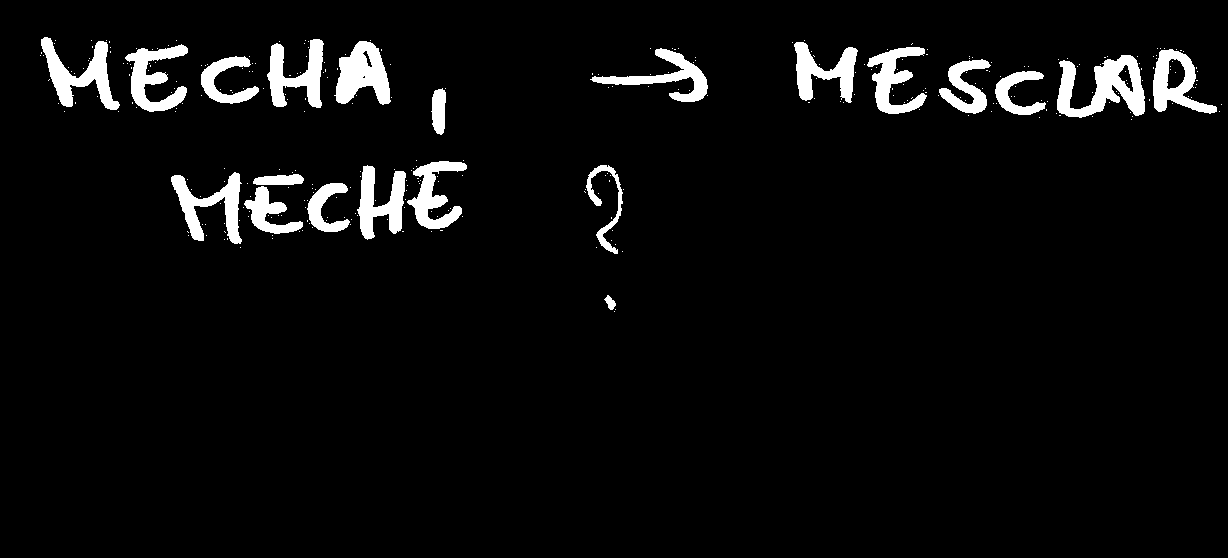 MECHA, → MESCLAR
MECHE ?